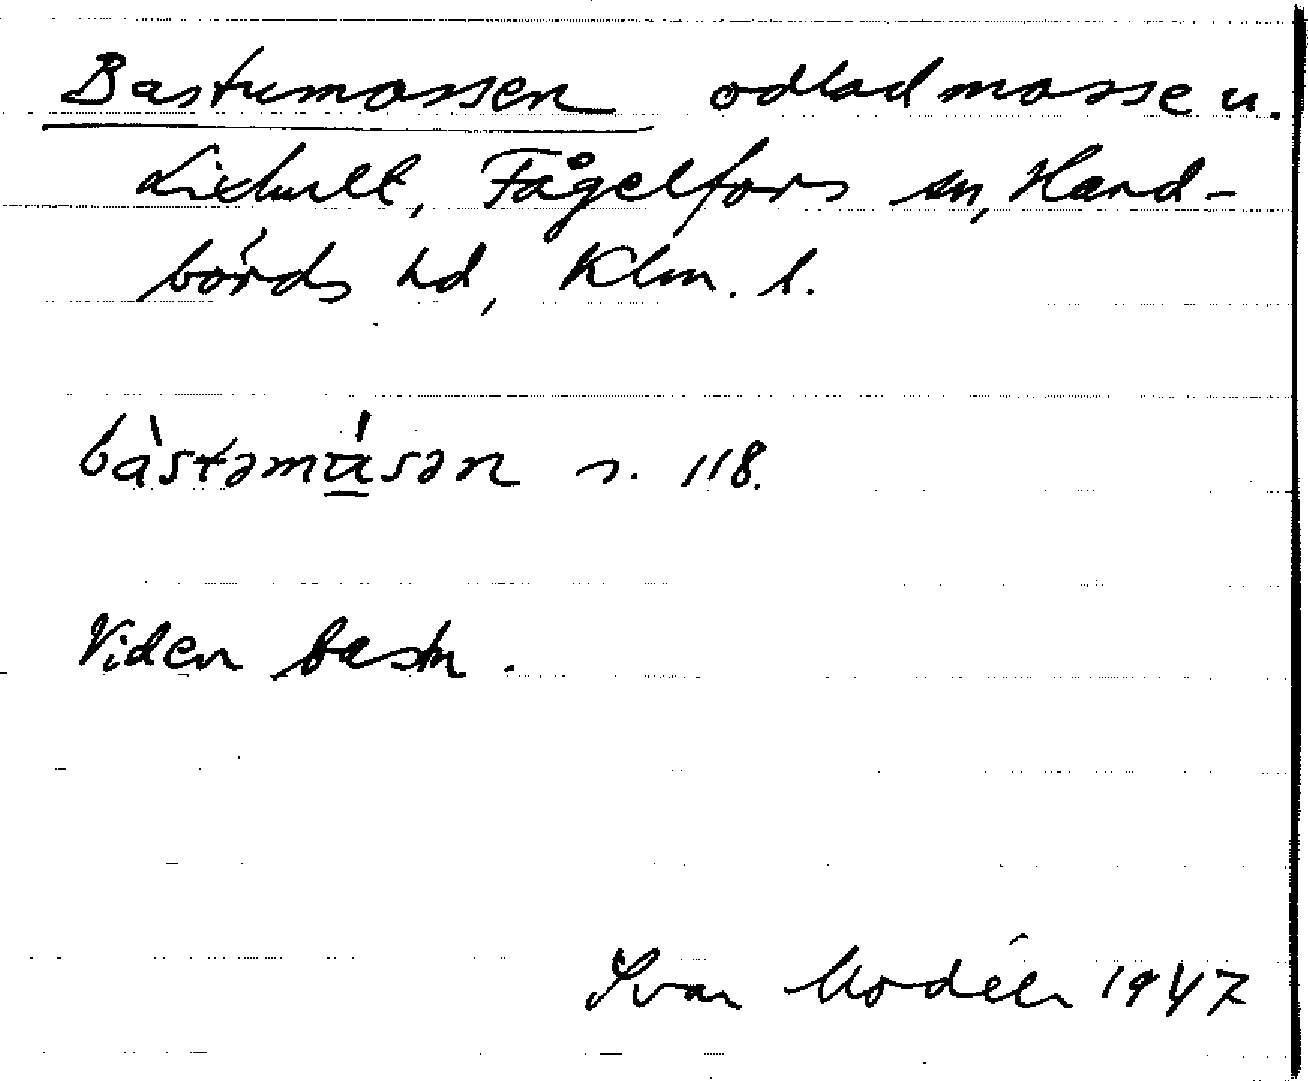 Bastumossen odlad mosse u.
Lixhult, Fågelfors sn, Hand-
börds hd, Klm. l.
bàstəmɑ́sən s. 118.
Viden bastu.
Ivar Modéer 1947